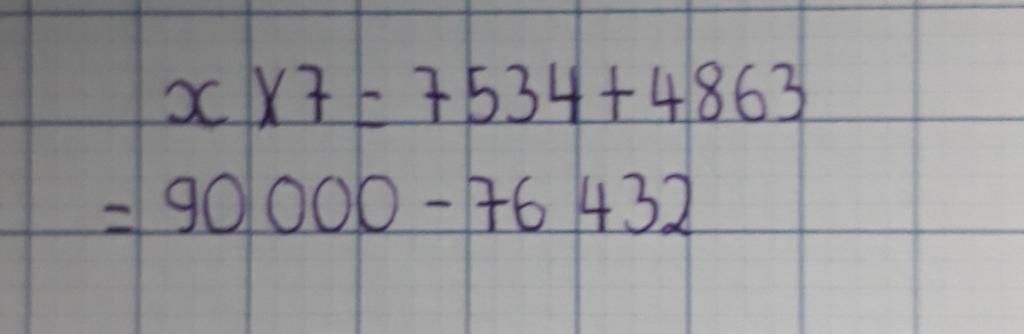 x × 7 = 7534 + 4863
= 90 000 - 76 432